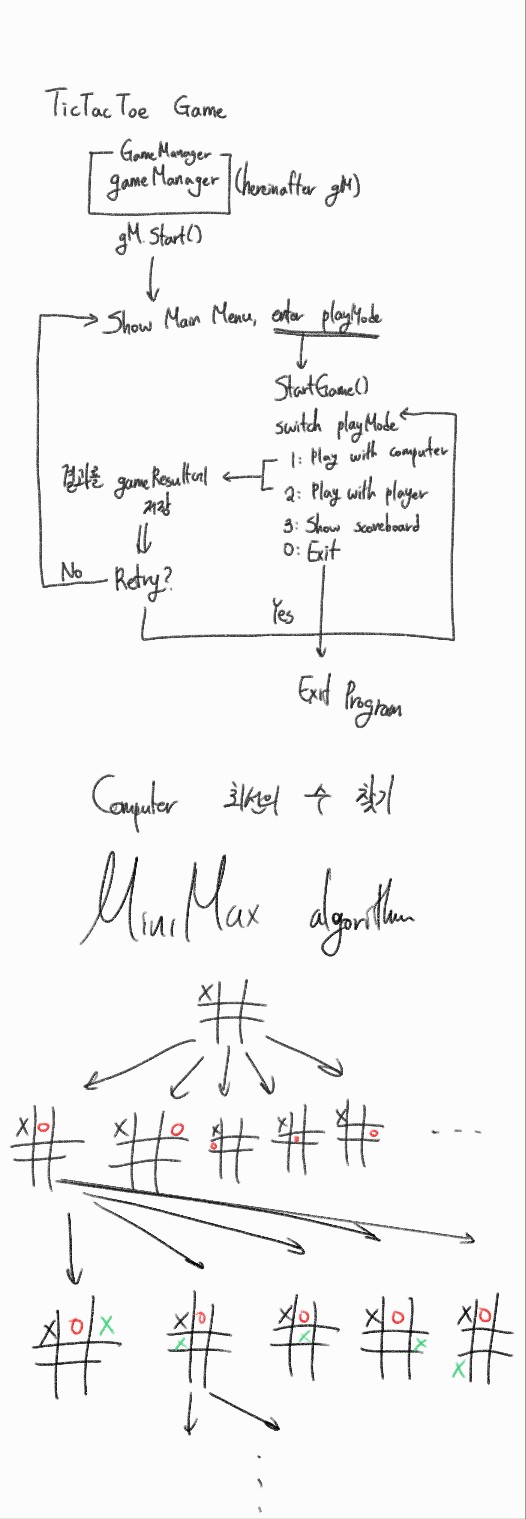 TicTacToe Game
GameManager
gameManager (hereinafter gM)
gM.Start()
Show Main Menu, enter playMode
StartGame()
switch playMode
1: Play with computer
2: Play with player
3: Show scoreboard
0: Exit
결과를 gameResult에
저장
No
Retry?
Yes
Exit Program
Computer 최선의 수 찾기
MiniMax algorithm
X
X O
X O
X
O
X
O
X
O
X O X
X O
X
X O
X
X O
X
X O
X